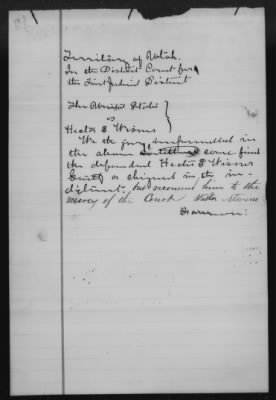 Territory of Utah.
In the District Court for
the First Judicial District
The United States
vs
Hector
We the jury, impannelled in
the above case find
the defendant Hector
Guilty as charged in the in-
dictment, but recomend him to the
mercy of the Court Walter
Foreman.